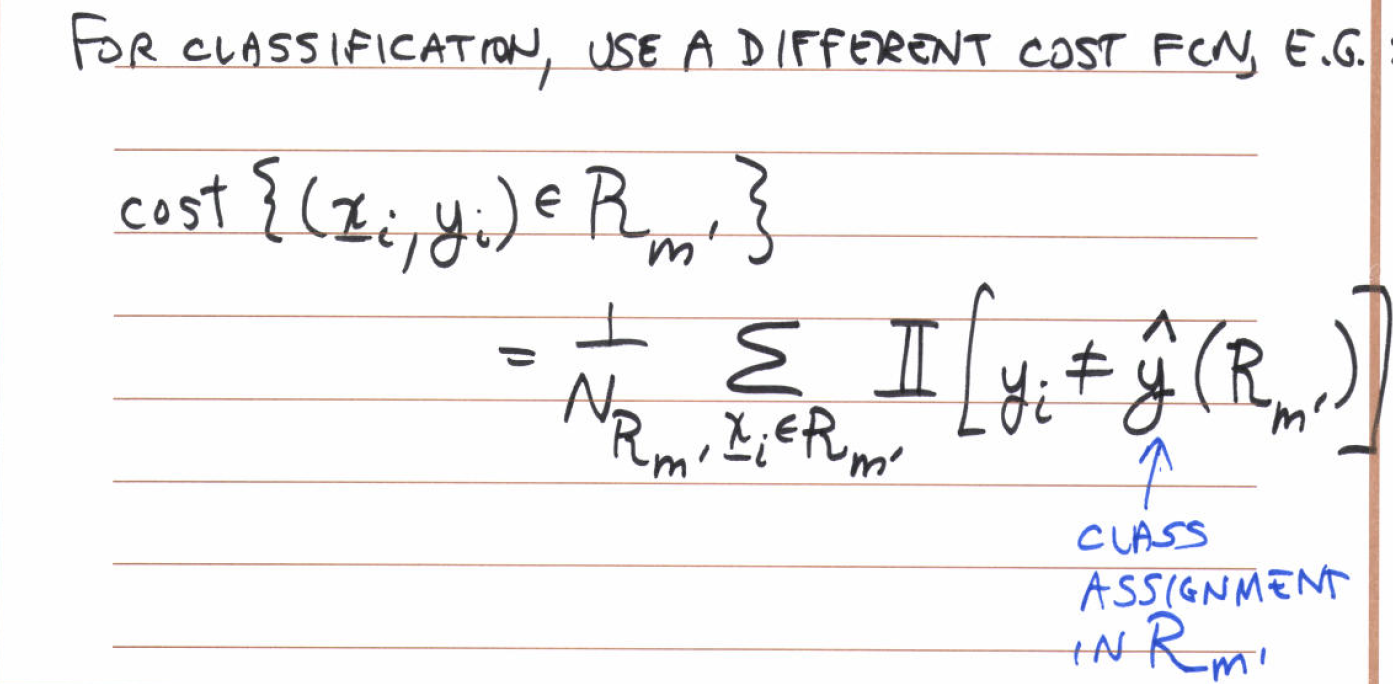 FOR CLASSIFICATION, USE A DIFFERENT COST FCN, E.G. :
cost {(x̲ᵢ, yᵢ) ∈ R_m'}
= 1/N_{R_m'} Σ_{x̲ᵢ∈R_m'} 𝕀[yᵢ ≠ ŷ(R_m')]
↑
CLASS
ASSIGNMENT
IN R_m'